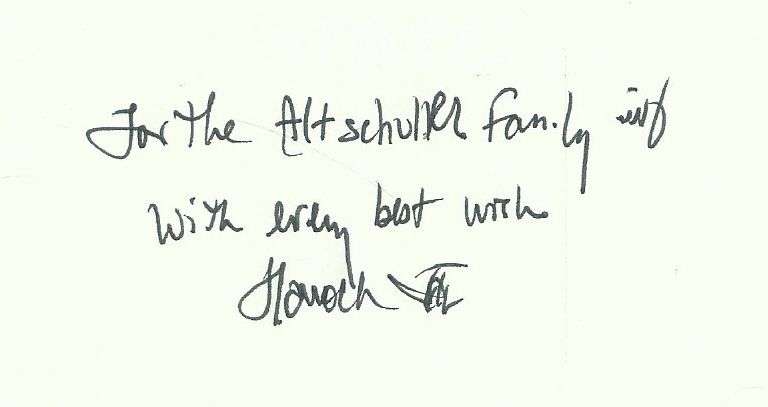 For the Altschuller Family
With every best wish
Hanoch